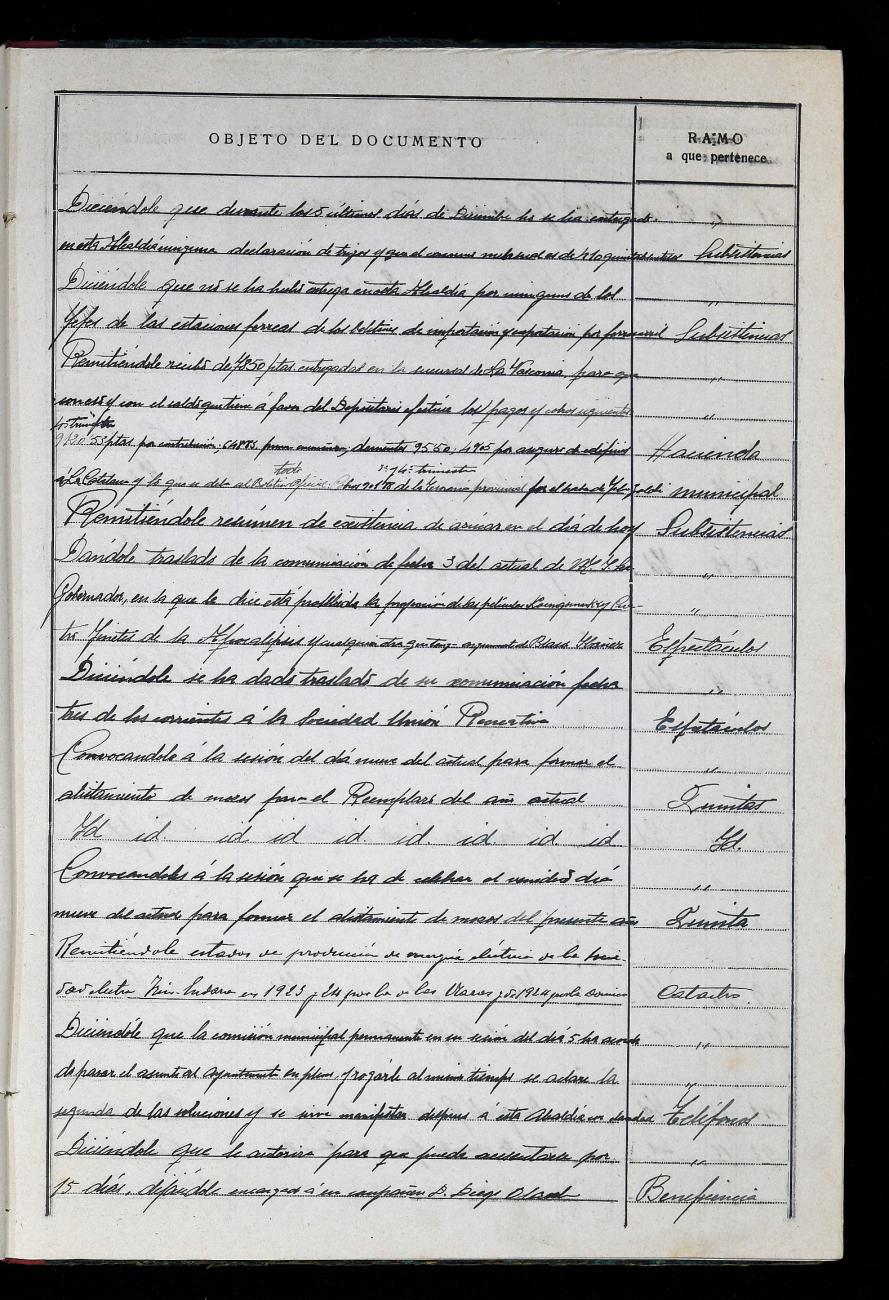 OBJETO DEL DOCUMENTO
RAMO
a que pertenece
Diciéndole que durante los 5 últimos días de Diciembre no se ha entregado „
en esta Alcaldía ninguna declaración de trigos y que el consumo mensual es de Subsistencias
Diciéndole que no se ha hecho entrega en esta Alcaldía por ninguno de los „
Gefes de las estaciones ferreas de los boletines de importación y exportación por ferrocarril Subsistencias
Remitiéndole recibo de 7850 ptas entregadas en la sucursal de La Vasconia, para que „
con eso y con el saldo que tiene á favor del Depositario efectúe los pagos y cobros siguientes „
4º trimestre
55 ptas por contribución; 9550, por seguro de edificios Hacienda
todo 3º y 4º trimestre
á La Catalana y lo que se debe al Boletín Oficial: municipal
Remitiéndole resúmen de existencia de azúcar en el día de hoy Subsistencias
Dándole traslado de la comunicación de fecha 3 del actual de M. I. Sr. „
Gobernador, en la que le dice está prohibida la proyección de las películas y Cua- „
tro Ginetes de la Apocalipsis y cualquier otra que tenga argumento de Blasco Ibañez Espectáculos
Diciéndole se ha dado traslado de su comunicación fecha „
tres de los corrientes á la Sociedad Unión Recreativa Espectáculos
Convocandole á la sesión del día nueve del actual para formar el „
alistamiento de mozos para el Reemplazo del año actual Quintas
Id id. id id id. id. id. id id Id.
Convocandoles á la sesión que se ha de celebrar el venidero día „
nueve del actual para formar el alistamiento de mozos del presente año Quinta
Remitiéndole estados de producción de energía eléctrica de la Socie-
dad electra en 1923 y 24 por la de las y de 1924 por la Catastro.
Diciéndole que la comisión municipal permanente en su sesión del día 5 ha acorda „
do pasar el asunto al Ayuntamiento en pleno y rogarle al mismo tiempo se aclare la „
segunda de las soluciones y se sirva manifestar después á esta Alcaldía Teléfonos
Diciéndole que le autoriza para que pueda ausentarse por „
15 días, dejándole encargado á su compañero D. Diego Beneficencia